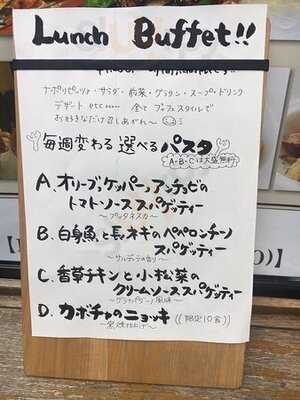 Lunch Buffet!!
ナポリピッツァ・サラダ・前菜・グラタン・スープ・ドリンク
デザート etc…… 全て ブッフェスタイルで
お好きなだけ召しあがれ〜
毎週変わる 選べるパスタ
A・B・Cは大盛無料
A. オリーブ、ケッパー、アンチョビの
トマトソーススパゲッティー
〜プッタネスカ〜
B. 白身魚と長ネギのペペロンチーノ
スパゲッティー
C. 香草チキンと小松菜の
クリームソーススパゲッティー
D. カボチャのニョッキ ((限定10食))